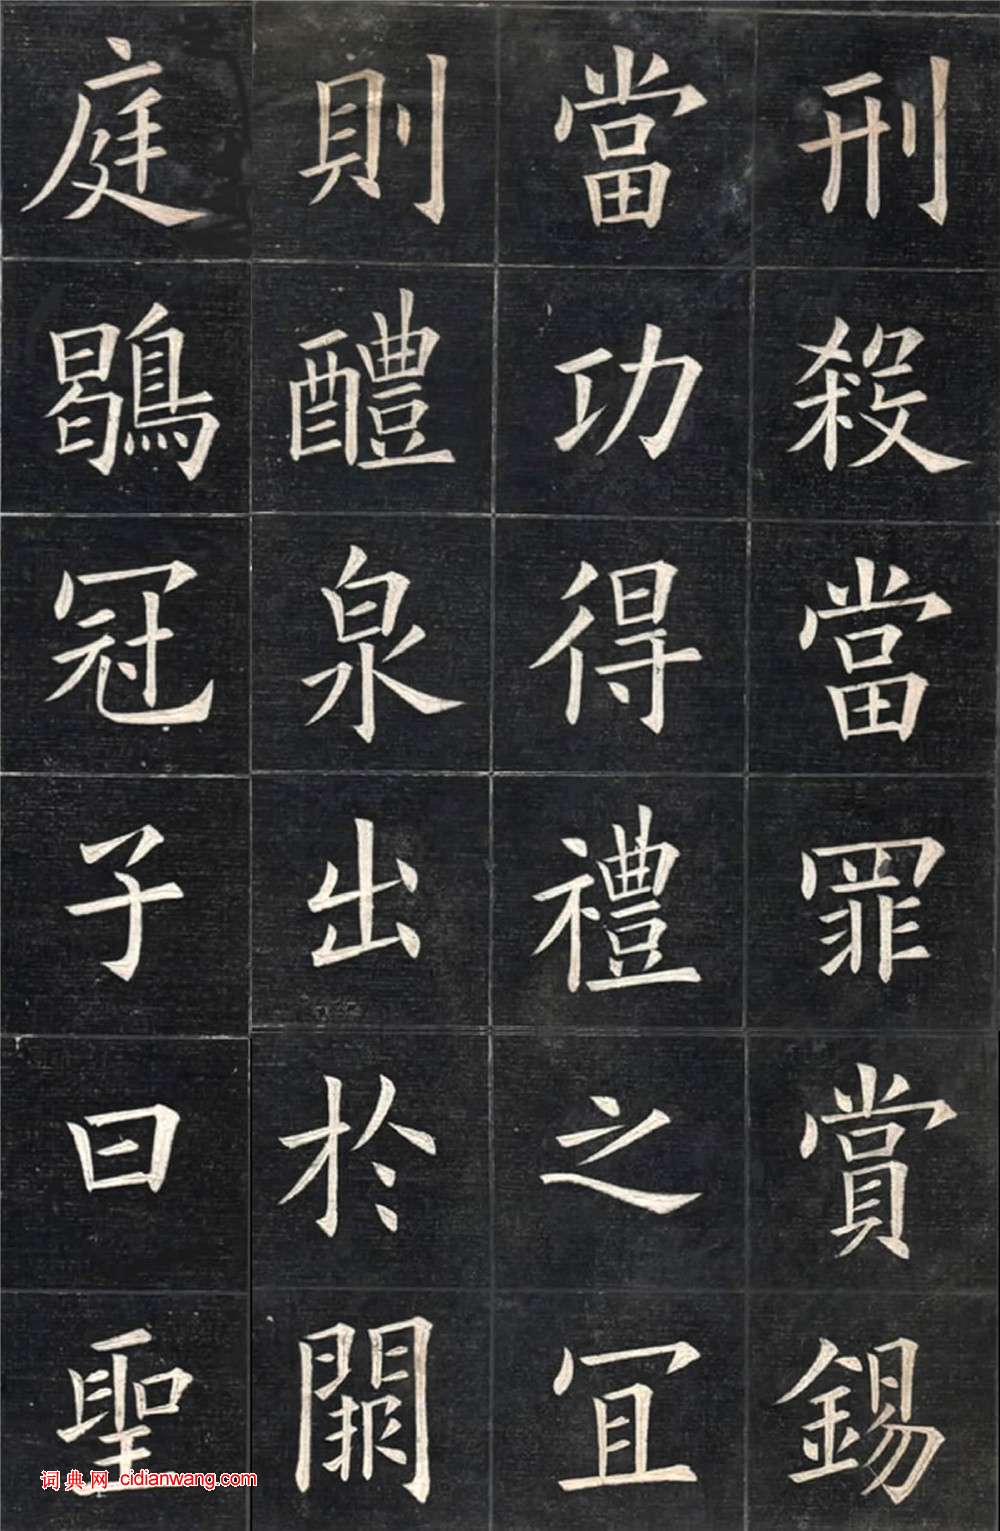 刑殺當罪賞錫
當功得禮之宜
則醴泉出於闕
庭鶡冠子曰聖
词典网 cidianwang.com